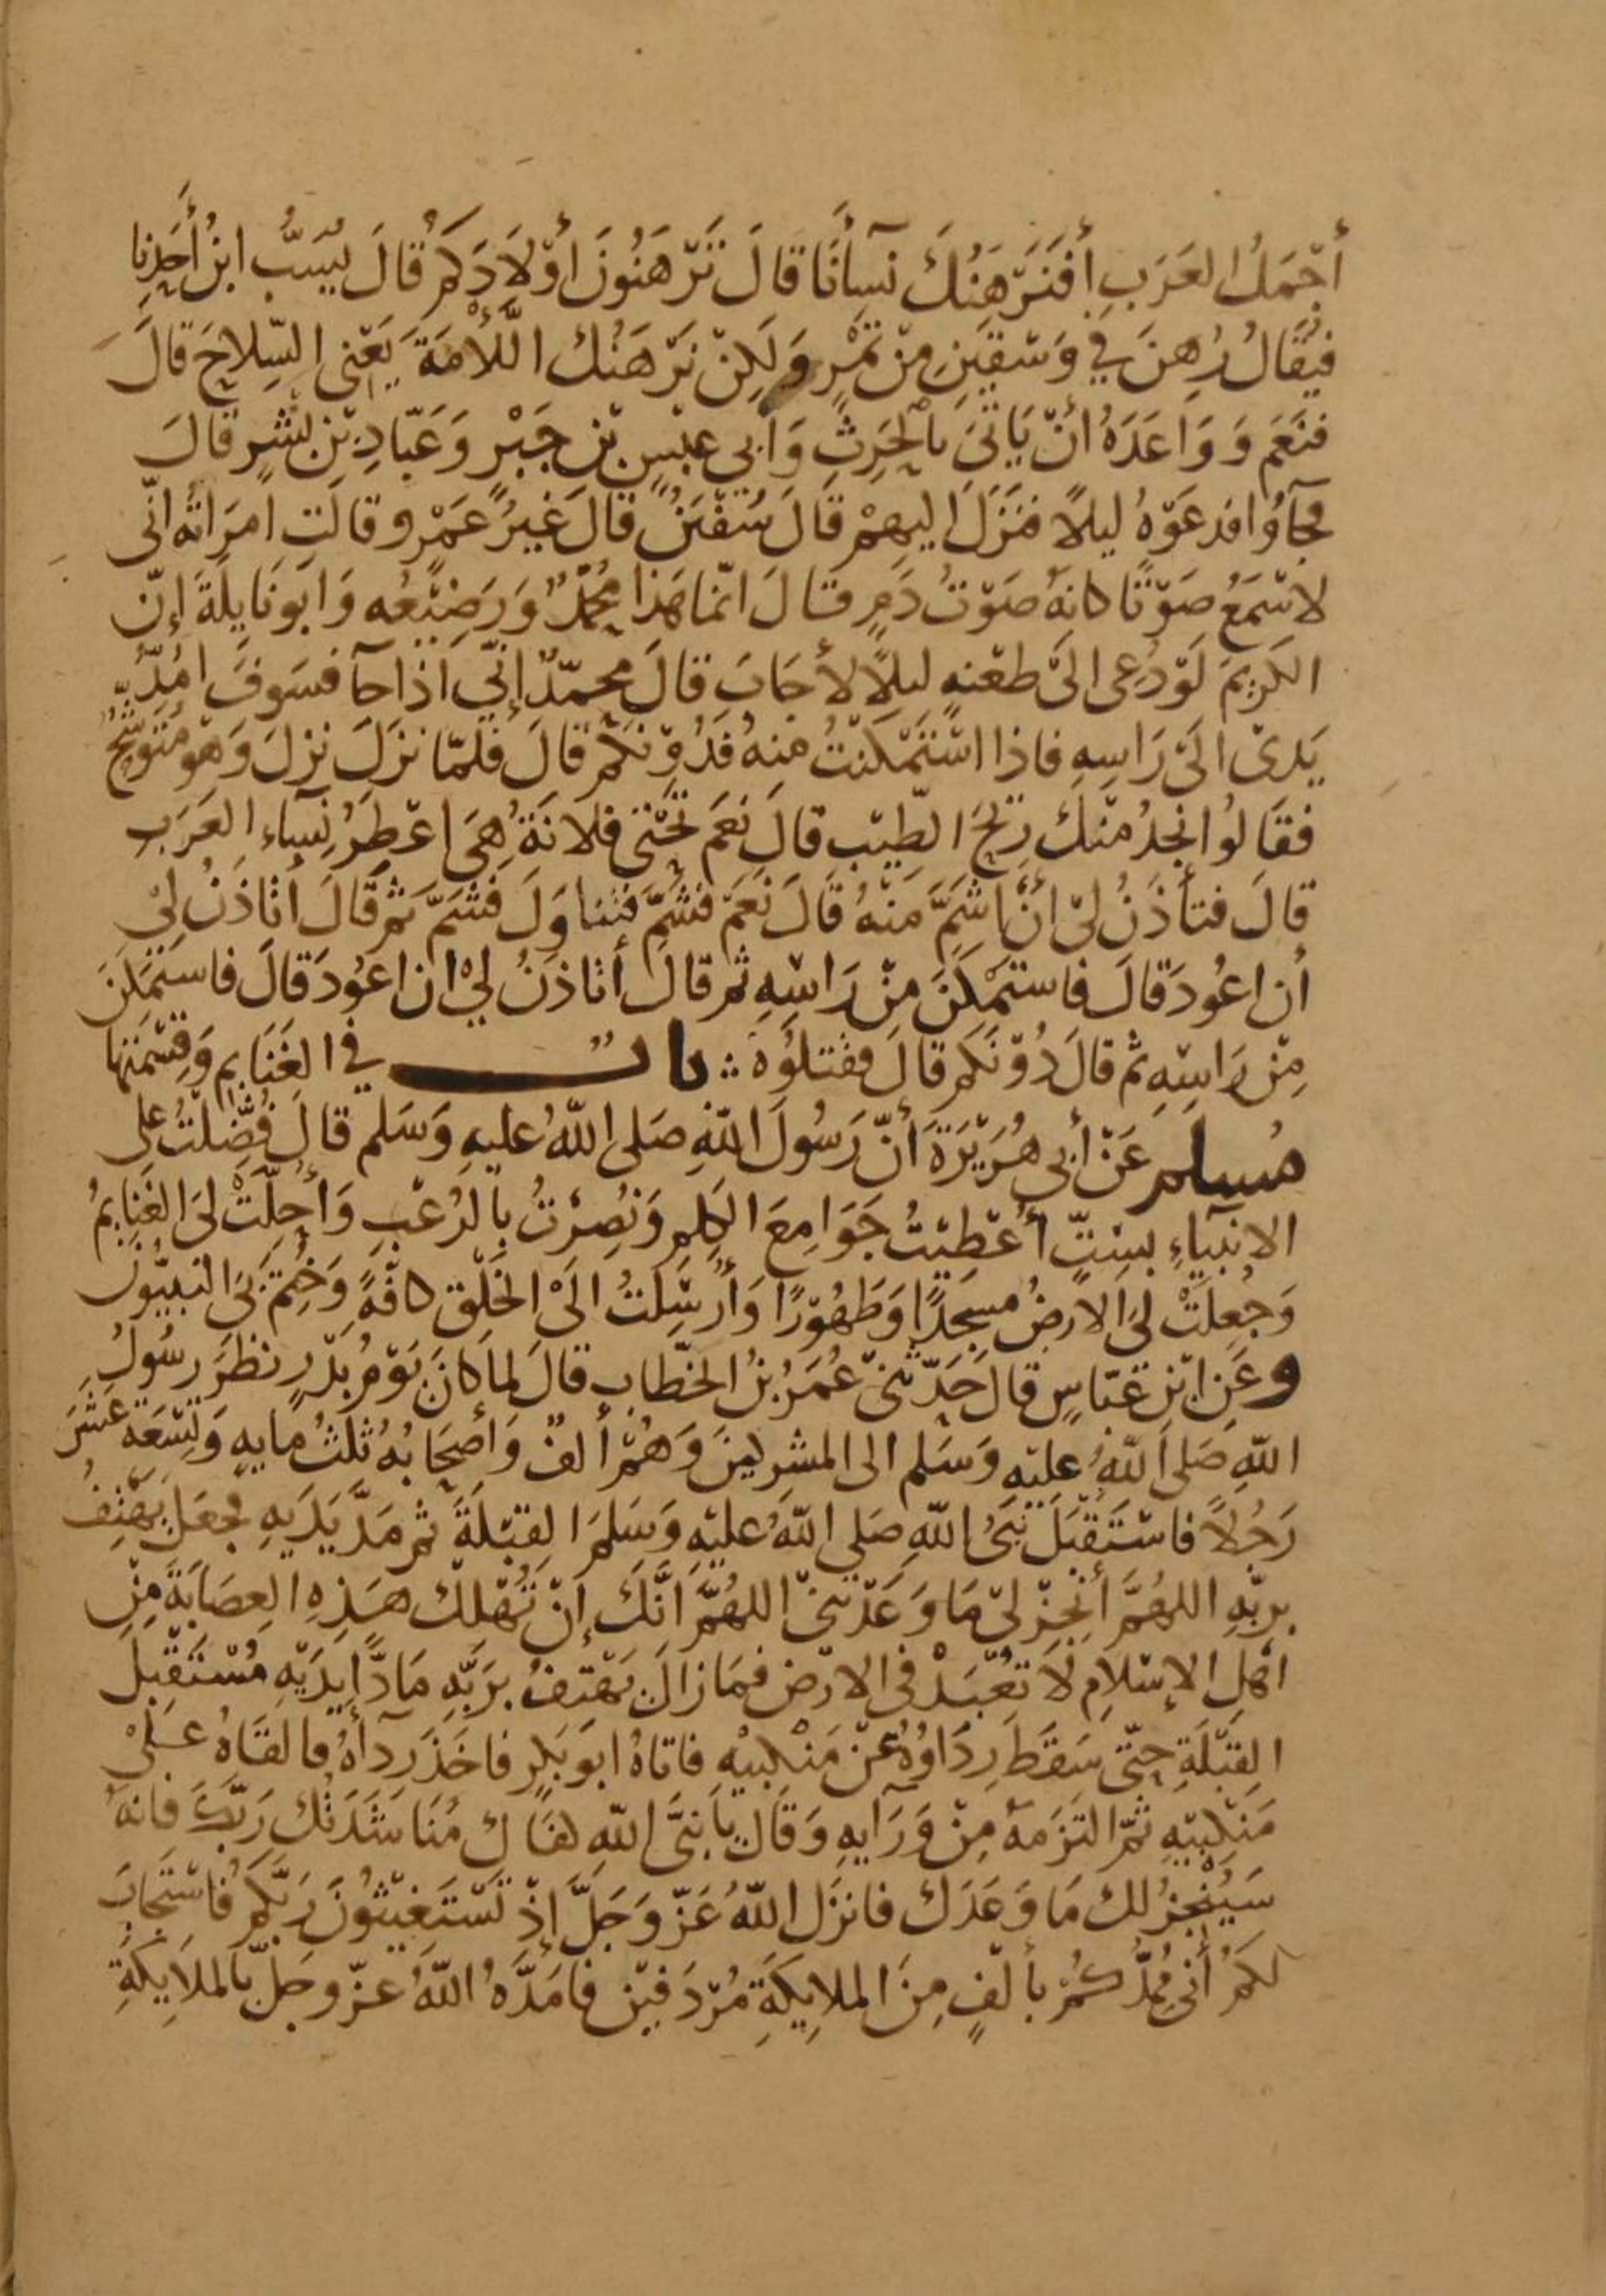 أجْمَلُ العَرَبِ أفَنَرْهَنُكَ نسآنَا قالَ تَرْهَنُونَ أوْلَادَكُم قالَ يُسَبُّ ابنُ أحَدِنا
فيُقَالُ رُهِنَ في وَسْقَيَنِ مِنْ تَمْرٍ وَلَكِنْ نَرْهَنُكَ اللَّأْمَةَ يَعْنى السِّلاحَ قالَ
فنَعَم وَوَاعَدَهُ أنْ يَاتىَ بالْحَرِثِ وَأبى عبْسِ بْنِ جَبْرٍ وَعَبّادِ بْنِ بشْرٍ قالَ
فجآؤا فدعَوْهُ ليلًا فنَزَلَ اليهِمْ قالَ سُفْيَنُ قالَ غيرُ عَمْرٍو قالَتِ امرَاتُه انّى
لاسْمَعُ صَوْتًا كانهُ صَوْتُ دَمٍ قالَ انّما هَذا مُحَمَّدٌ وَرَضيْعُه وَابو نَايلَةَ إنّ
الكَرِيمَ لَوْ دُعِى الىَ طعْنهٍ ليلًا لأجَابَ قالَ محمّدٌ إنّى اذا جآ فسَوفَ امُدُّ
يَدىْ الىَ رَاسِهِ فاذا اسْتَمْكَنْتُ منهُ فَدُوْنكُم قالَ فلمّا نزَلَ نزلَ وَهْوَ مُتَوشّحٌ
فقَالُوا نجدُ منْكَ رِيْحَ الطِّيْبِ قالَ نَعَم تَحْتى فلانَةُ هِىَ اعْطَرُ نسَاءِ العَرَبِ
قالَ فتأذَنُ لىْ أنْ اشَمَّ منْهُ قَالَ نَعَمْ فشُمَّ فتنَاوَلَ فشَمَّ ثم قَالَ أتاذَنُ لىْ
أن اعُودَ قالَ فاستَمْكَنَ مِنْ رَاسِهِ ثم قالَ أتاذَنُ لىْ ان اعُودَ قالَ فاستَمْكَنَ
مِنْ رَاسِهِ ثم قالَ دُوْنَكُم قالَ فقتلُوْهُ ؞ بابٌ في الغَنَايمِ وَقِسْمَتِها
مُسلم عَنْ أبى هُرَيْرَةَ أنّ رَسُولَ اللّهِ صَلى اللّهُ عليهِ وَسَلم قالَ فُضِّلْتُ على
الانبيَاءِ بسِتٍّ أُعْطِيْتُ جَوَامِعَ الكَلِمِ وَنُصِرْتُ بالرُعْبِ وَأُحِلّتْ لىَ الغَنَايمُ
وَجُعِلَتْ لىَ الارضُ مسجَدًا وَطَهُوْرًا وَأُرْسِلتُ الىَ الخَلْقِ كافّةً وَخُتِمَ بىَ النبيّونَ
وعَنِ ابْنِ عَبّاسٍ قالَ حَدّثنىْ عُمَرُ بْنُ الخَطّابِ قالَ لما كانَ يَوْمُ بَدْرٍ نظَرَ رسُولُ
اللّهِ صَلى اللّهُ عليْهِ وَسَلم الى المشركينَ وَهُمْ ألفٌ وَأصْحَابُهُ ثلثُ مايهٍ وَتِسْعَةَ عَشَرَ
رَجُلًا فاسْتَقْبَلَ نبىُّ اللّهِ صَلى اللّهُ عليْهِ وَسَلمَ القِبْلَةَ ثم مَدَّ يَدَيهِ فجعَلَ يَهْتِفُ
بربّهِ اللهُمَّ أنْجِزْ لىْ مَا وَعَدْتَنىْ اللهُمَّ انَّكَ إنْ تُهْلكْ هَذِهِ العِصَابَةَ مِنْ
أهْلِ الإسْلَامِ لَا تُعْبَدْ فى الارْضِ فمَا زالَ يَهْتِفُ برَبَّهِ مَادًّا يَدَيْهِ مُسْتَقْبِلَ
القِبْلَةِ حتّى سَقَطَ رِدَاؤُهُ عنْ مَنْكِبيْهِ فاتاهُ ابو بَكرٍ فاخَذَ رِدآهُ فالقَاهُ عَلىْ
مَنْكِبيْهِ ثمّ التَزَمَهُ مِنْ وَرَآيهِ وَقَالَ يا نبىَّ اللّهِ كفَاكَ مُنَاشَدَتُكَ رَبَّكَ فانهُ
سَيُنْجِزُ لكَ مَا وَعَدَكَ فانزَل اللّهُ عَزّ وَجَلَّ إذْ تَسْتَغيْثُونَ رَبَّكُم فاسْتَجابَ
لكُمُ أنى مُمِدُّكُمْ بألْفٍ مِنَ الملايِكَةِ مُرْدَفيْنَ فامَدَّهُ اللّهُ عزّ وجلّ بالملَايِكَةِ